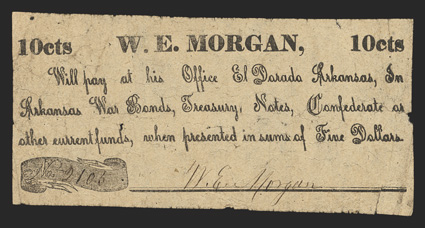 10cts W. E. MORGAN, 10cts
Will pay at his Office El Dorado Arkansas, In
Arkansas War Bonds, Treasury, Notes, Confederate or
other current funds, when presented in sums of Five Dollars.
No. 2105 W. E. Morgan